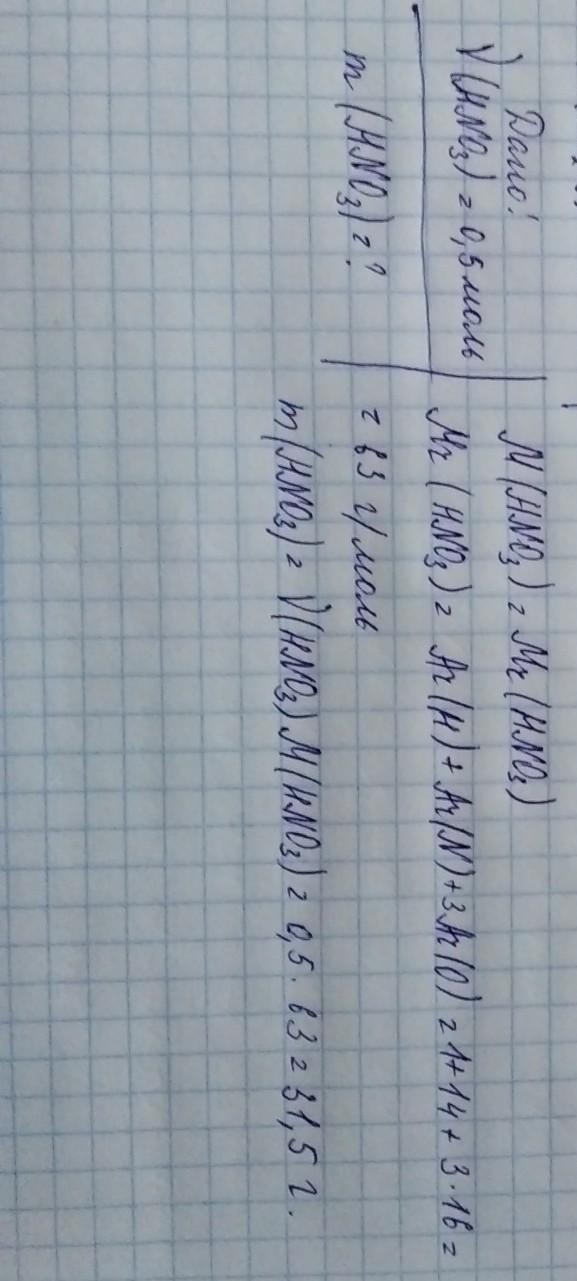 Дано:
ν(HNO₃) = 0,5 моль
m(HNO₃) = ?
M(HNO₃) = Mr(HNO₃)
Mr(HNO₃) = Ar(H) + Ar(N) + 3Ar(O) = 1 + 14 + 3 · 16 =
= 63 г/моль
m(HNO₃) = ν(HNO₃) M(HNO₃) = 0,5 · 63 = 31,5 г.